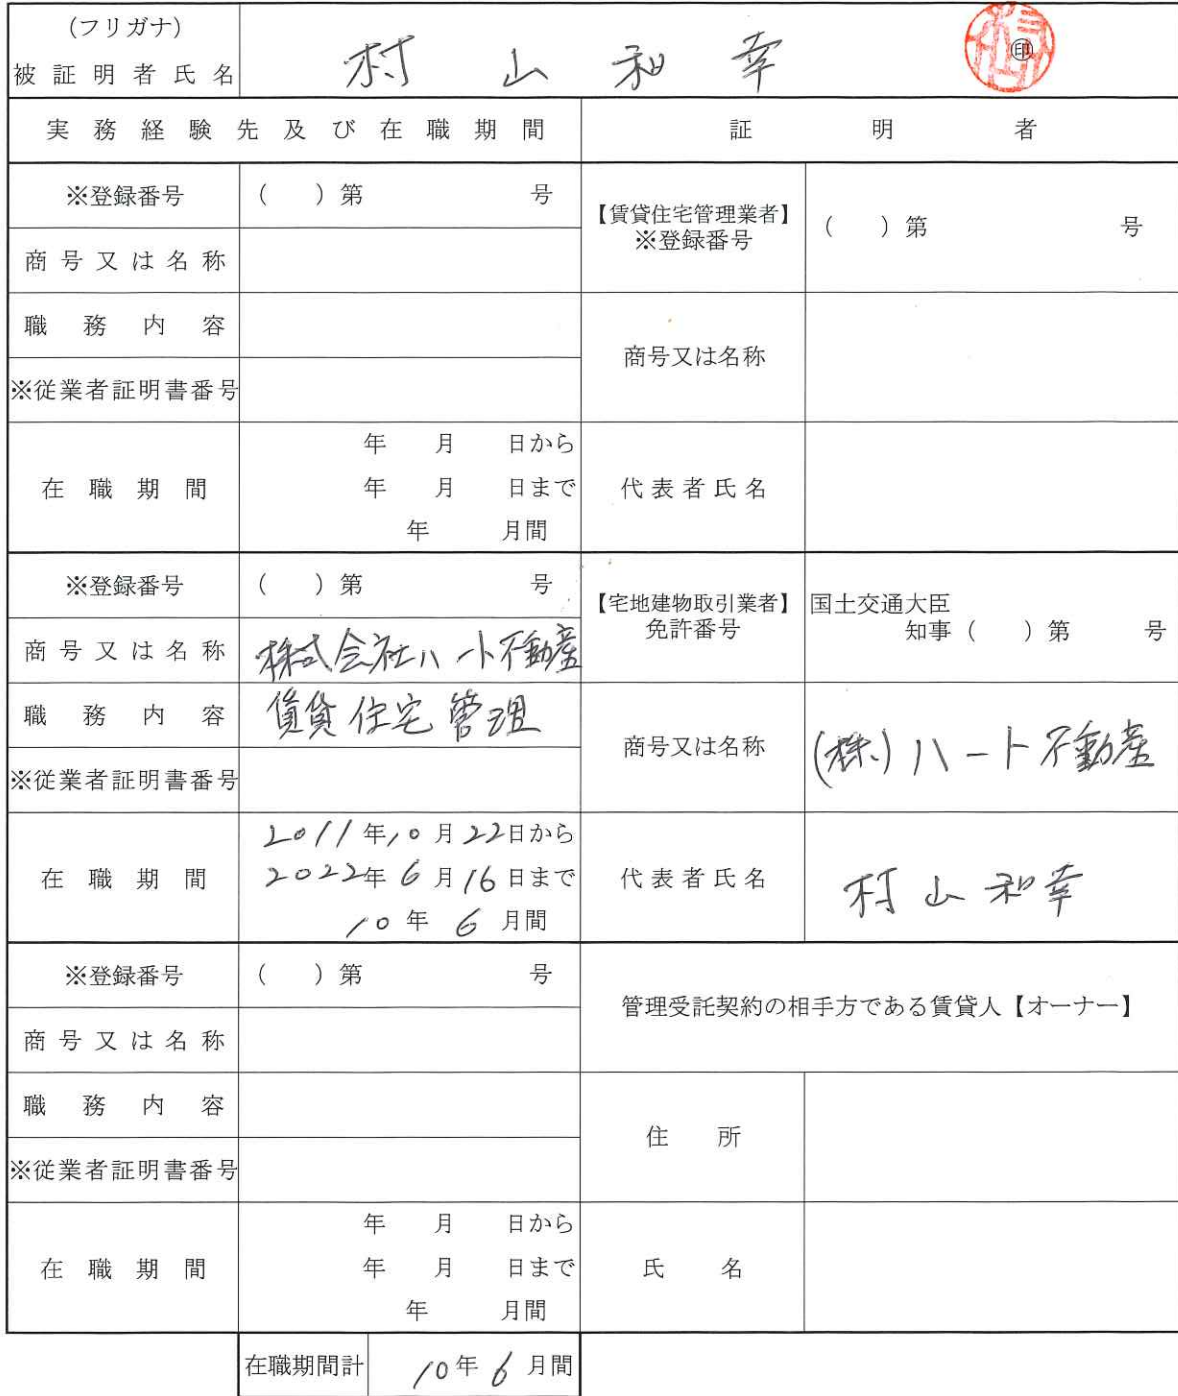 (フリガナ)
被証明者氏名 村山和幸 ㊞
実務経験先及び在職期間 証明者
※登録番号 ( )第 号
商号又は名称
職務内容
※従業者証明書番号
在職期間 年 月 日から
年 月 日まで
年 月間
【賃貸住宅管理業者】
※登録番号 ( )第 号
商号又は名称
代表者氏名
※登録番号 ( )第 号
商号又は名称 株式会社ハート不動産
職務内容 賃貸住宅管理
※従業者証明書番号
在職期間 2011年10月22日から
2022年6月16日まで
10年6月間
【宅地建物取引業者】 国土交通大臣
免許番号 知事( )第 号
商号又は名称 (株)ハート不動産
代表者氏名 村山和幸
※登録番号 ( )第 号
商号又は名称
職務内容
※従業者証明書番号
在職期間 年 月 日から
年 月 日まで
年 月間
管理受託契約の相手方である賃貸人【オーナー】
住所
氏名
在職期間計 10年6月間